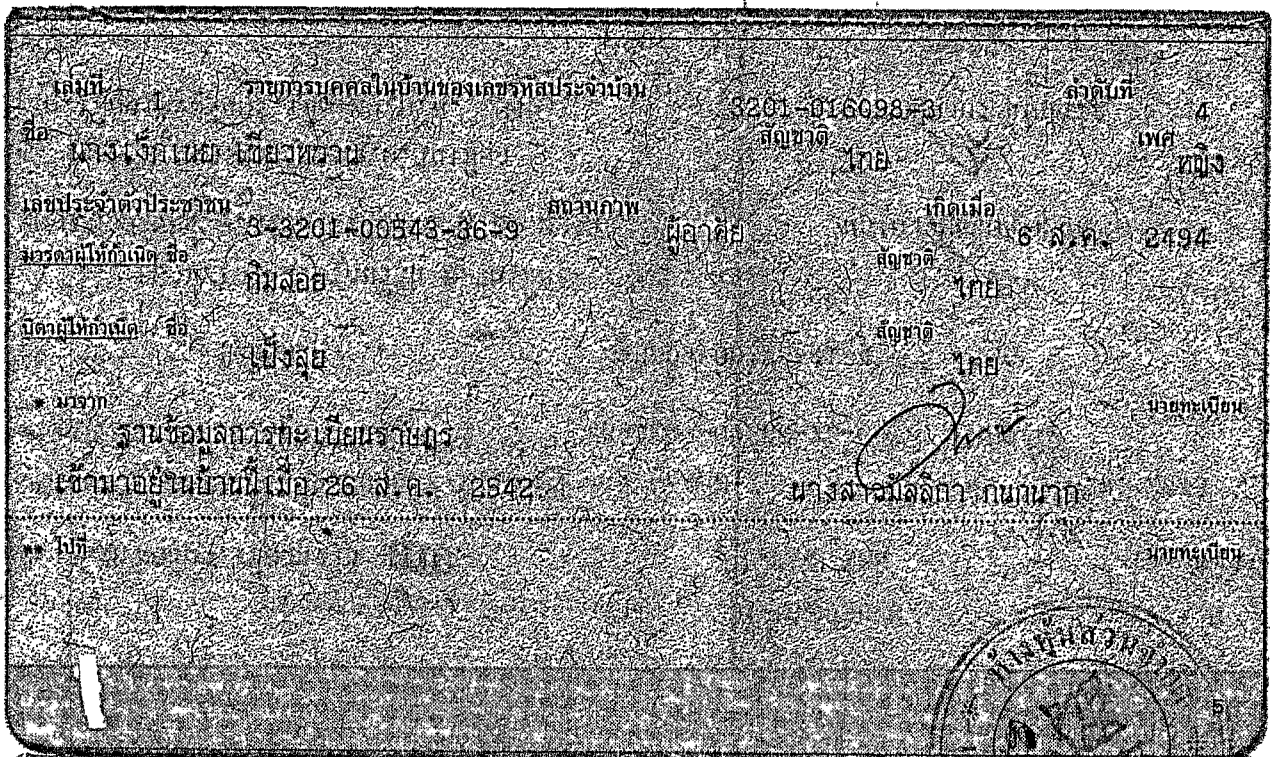 เล่มที่ 1 รายการบุคคลในบ้านของเลขรหัสประจำบ้าน 3201-016098-3 ลำดับที่ 4
ชื่อ นางเง็กเนย เขียวหวาน สัญชาติ ไทย เพศ หญิง
เลขประจำตัวประชาชน 3-3201-00543-36-9 สถานภาพ ผู้อาศัย เกิดเมื่อ 6 ส.ค. 2494
มารดาผู้ให้กำเนิด ชื่อ กิมสอย สัญชาติ ไทย
บิดาผู้ให้กำเนิด ชื่อ เป็งสุย สัญชาติ ไทย
* มาจาก
ฐานข้อมูลการทะเบียนราษฎร นายทะเบียน
เข้ามาอยู่ในบ้านนี้เมื่อ 26 ส.ค. 2542 นางสาวมัลลิกา กนกนาก
** ไปที่ นายทะเบียน
ห้างหุ้นส่วนจำกัด
5